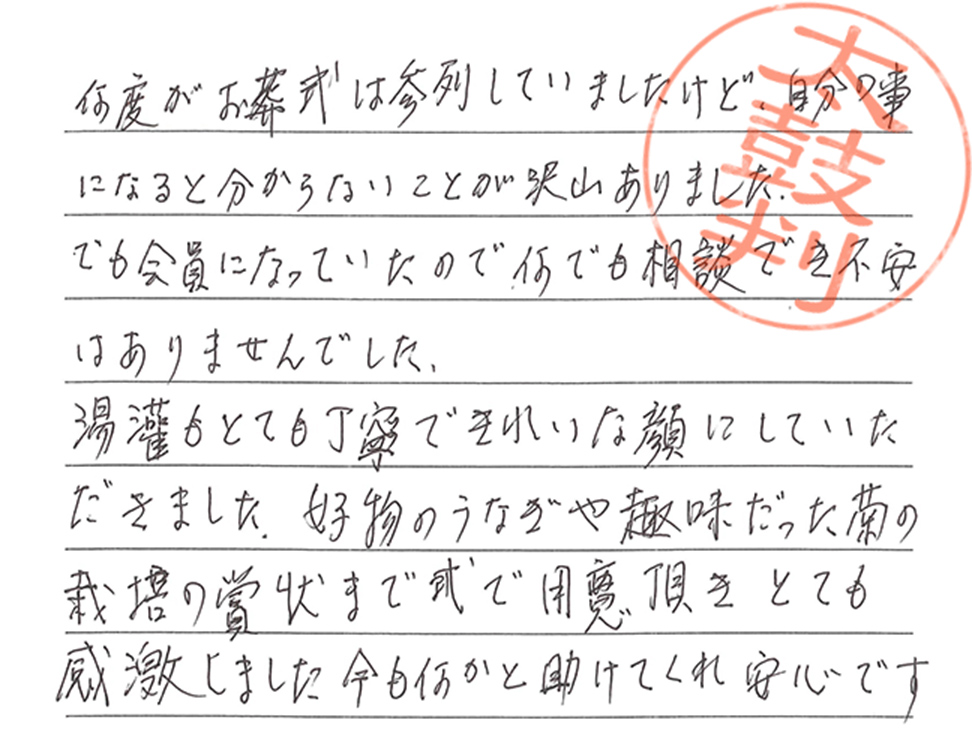 何度がお葬式は参列していましたけど、自分の事
になると分からないことが沢山ありました.
でも会員になっていたので何でも相談でき不安
はありませんでした、
湯灌もとても丁寧できれいな顔にしていた
だきました. 好物のうなぎや趣味だった菊の
栽培の賞状まで式で用意頂きとても
感激しました今も何かと助けてくれ安心です
太鼓判